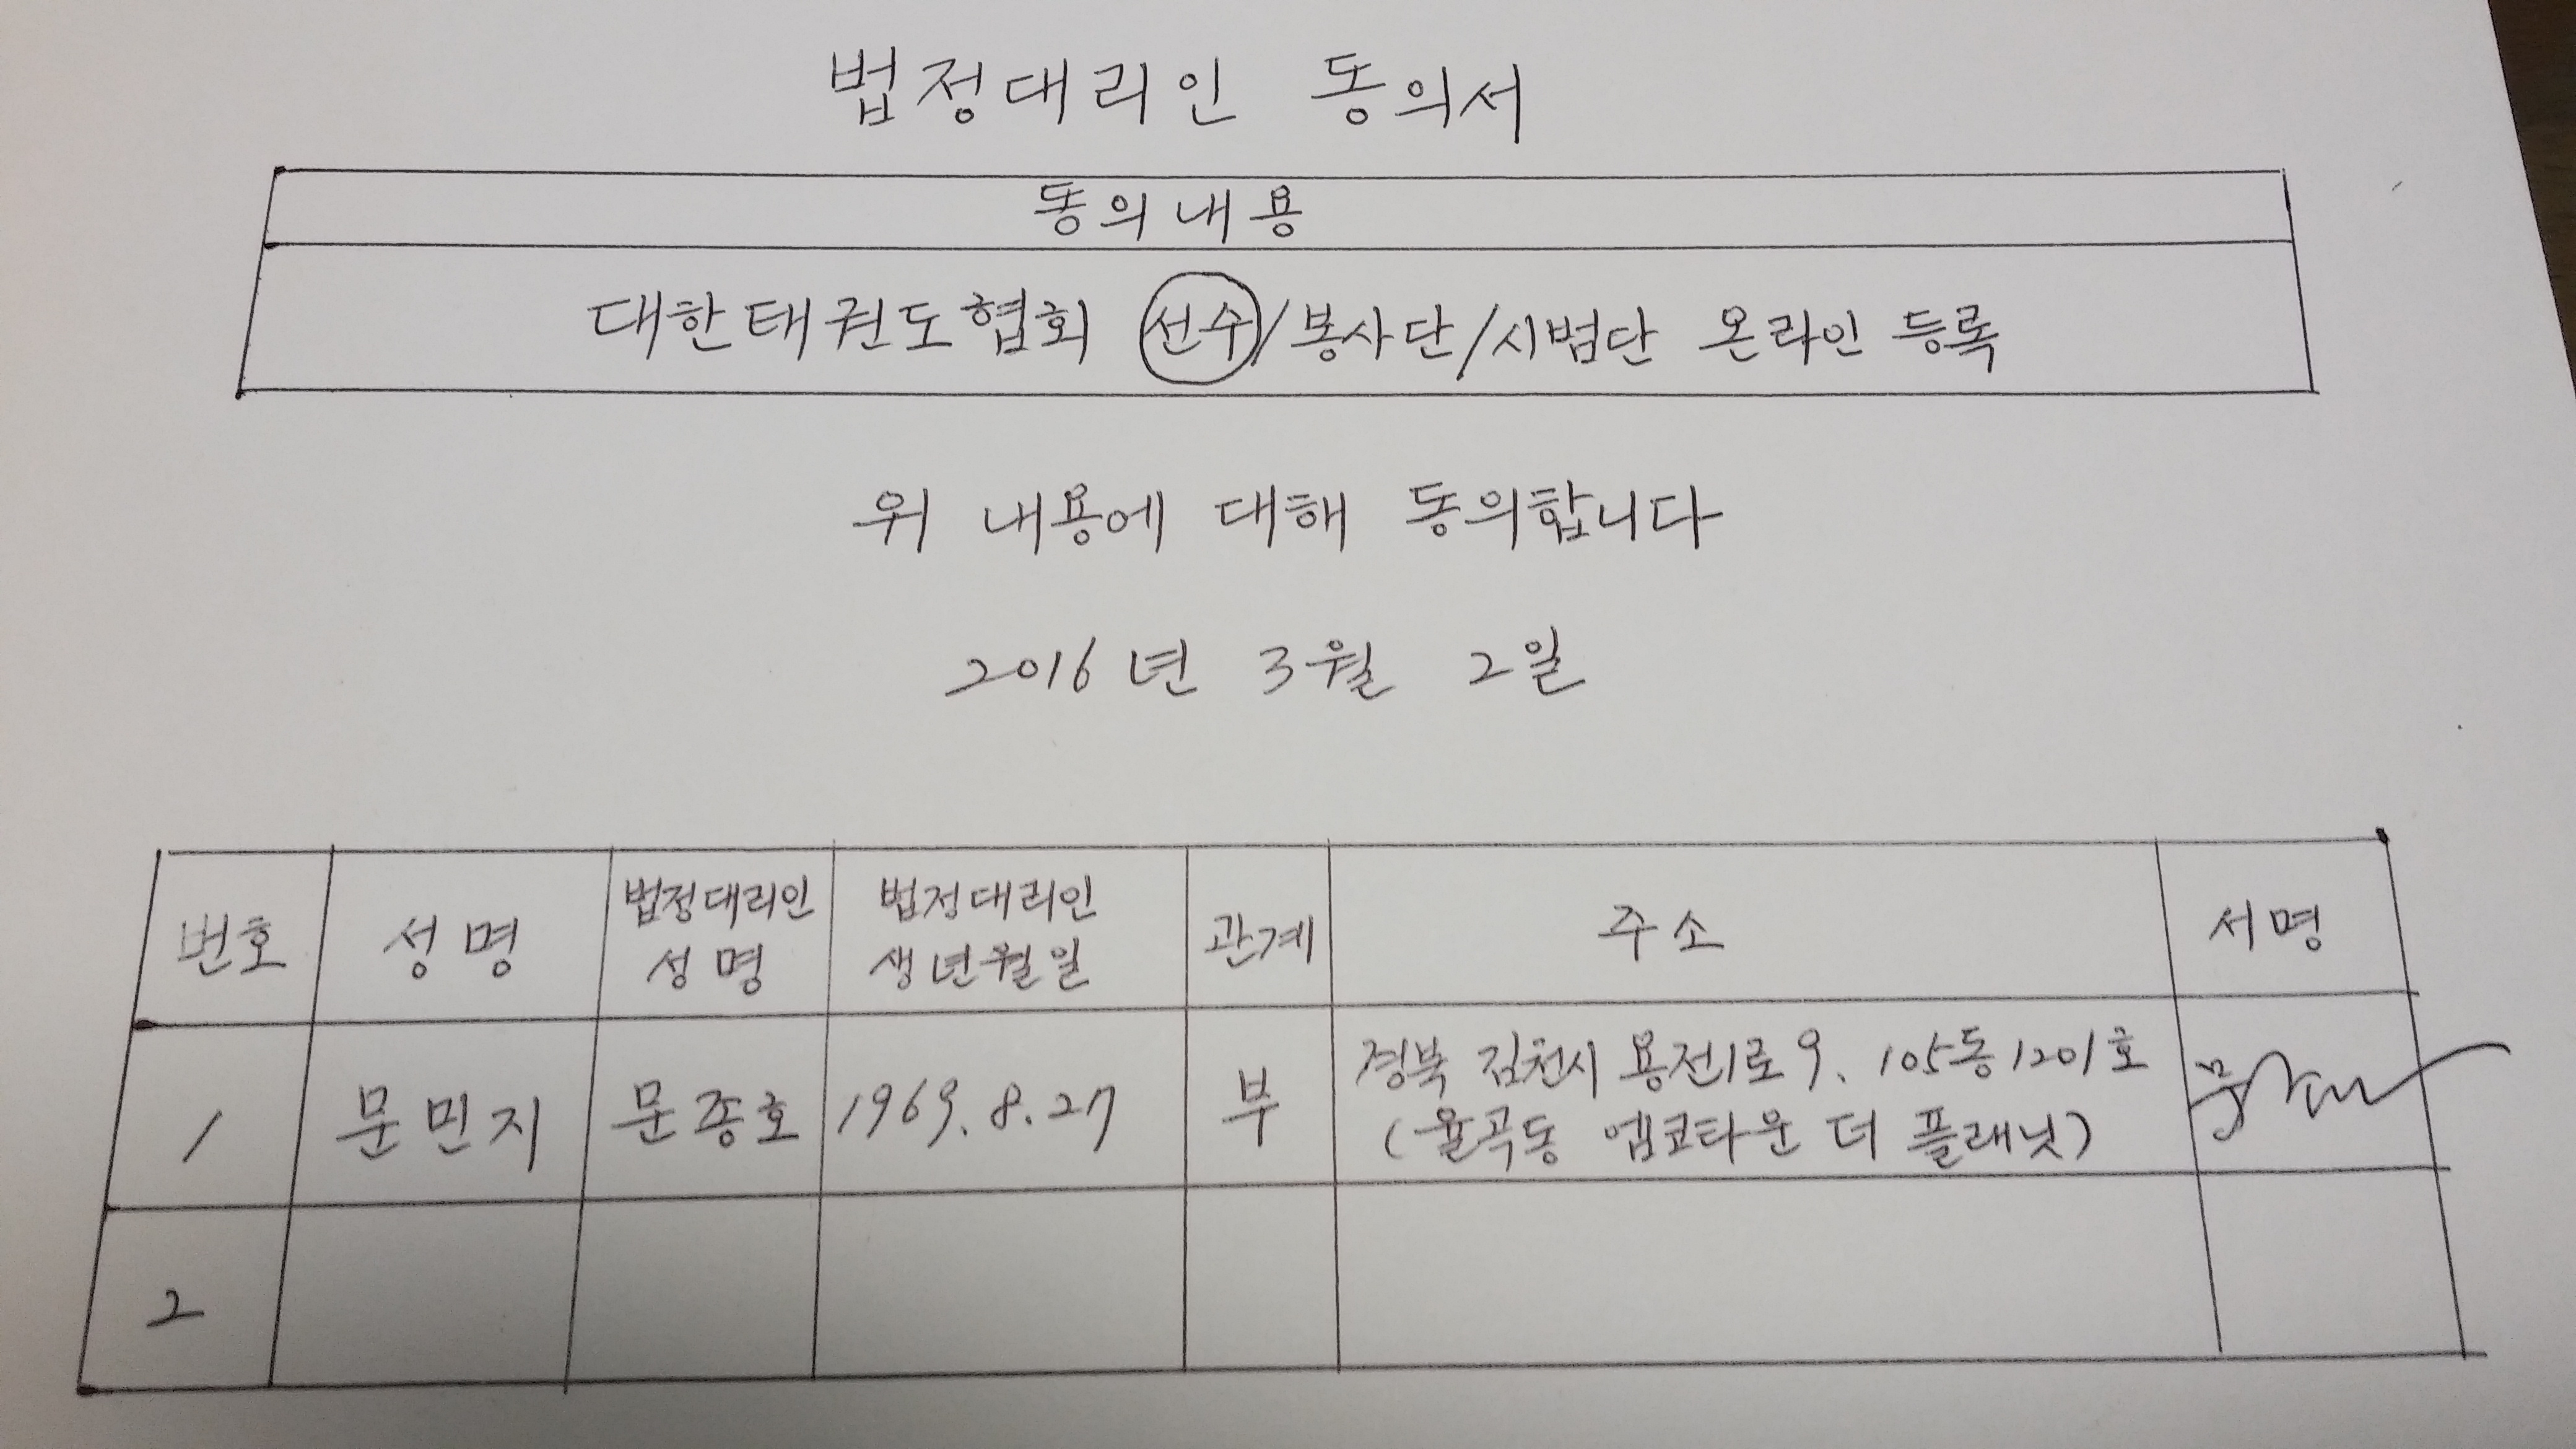 법정대리인 동의서
동의내용
대한태권도협회 선수/봉사단/시범단 온라인 등록
위 내용에 대해 동의합니다
2016년 3월 2일
번호 성명 법정대리인 성명 법정대리인 생년월일 관계 주소 서명
1 문민지 문종호 1969.8.27 부 경북 김천시 용전1로 9. 105동 1201호
(율곡동 엠코타운 더 플래닛)
2